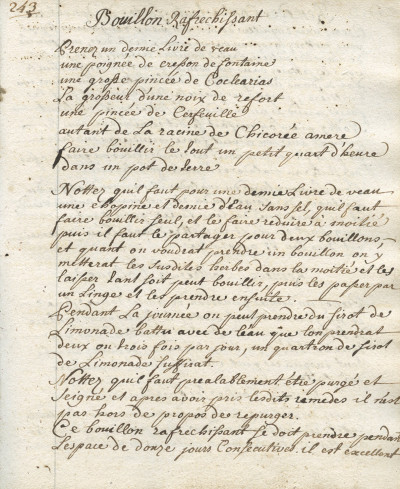 243
Bouillon Rafrechissant
Prenez un demie Livre de veau
une poignée de cresson de fontaine
une grosse pincée de Coclearias
La grosseur d'une noix de refort
une pincée de Cerfeuille
autant de La racine de Chicorée amere
faire bouillir le tout un petit quart d'heure
dans un pot de terre
Nottez qu'il faut pour une demie Livre de veau
une chopine et demie d'Eau sans sel, qu'il faut
faire bouillir seul, et le faire reduire à moitié
puis il faut le partager pour deux bouillons,
et quant on voudrat prendre un bouillon on y
metterat les susdites herbes dans la moitie et les
laisser tant soit peut bouillir, puis les passer par
un Linge et les prendre ensuite.
Pendant La journee on peut prendre du sirot de
Limonade battu avec de l'eau que l'on prendrat
deux ou trois fois par jour, un quartron de sirot
de Limonade suffirat.
Nottez qu'il faut prealablement été purgé et
seigné et apres avoir pris lesdits remedes il n'est
pas hors de propos de repurger.
Ce bouillon rafrechissant se doit prendre pendant
l'espace de douze jours Consecutives. il est excellent